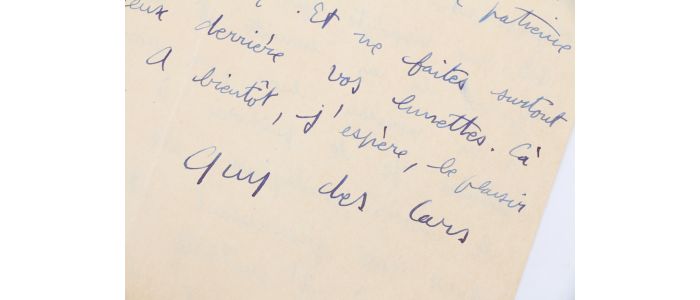 patience
. Et ne faites surtout
eux derrière vos lunettes. Cà
A bientôt, j'espère, le plaisir
Guy des Cars